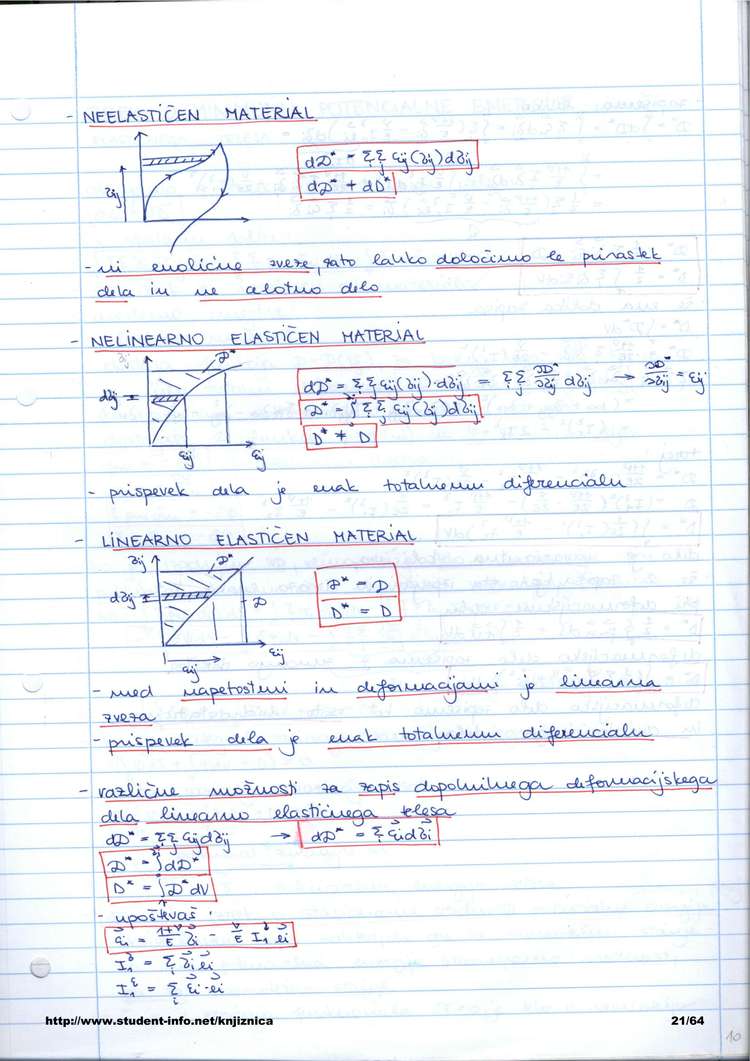 - NEELASTIČEN MATERIAL
σij
d𝒟* = Σi Σj εij (σij) dσij
d𝒟* ≠ dD*
- ni enolične zveze, zato lahko določimo le prirastek
dela in ne celotno delo
- NELINEARNO ELASTIČEN MATERIAL
σij 𝒟*
dσij
εij εij
d𝒟* = Σi Σj εij (σij) · dσij = Σi Σj ∂𝒟*/∂σij dσij → ∂𝒟*/∂σij = εij
𝒟* = ∫ Σi Σj εij (σij) dσij
D* ≠ D
- prispevek dela je enak totalnemu diferencialu
- LINEARNO ELASTIČEN MATERIAL
σij 𝒟*
dσij 𝒟
εij εij
𝒟* = 𝒟
D* = D
- med napetostmi in deformacijami je linearna
zveza
- prispevek dela je enak totalnemu diferencialu
- različne možnosti za zapis dopolnilnega deformacijskega
dela linearno elastičnega telesa
d𝒟* = Σi Σj εij dσij → d𝒟* = Σi ε⃗i dσ⃗i
𝒟* = ∫ d𝒟*
D* = ∫ 𝒟* dV
- upoštevaš:
ε⃗i = 1+ν/E σ⃗i - ν/E I₁^σ e⃗i
I₁^σ = Σi σ⃗i e⃗i
I₁^ε = Σi ε⃗i · e⃗i
http://www.student-info.net/knjiznica 21/64
10